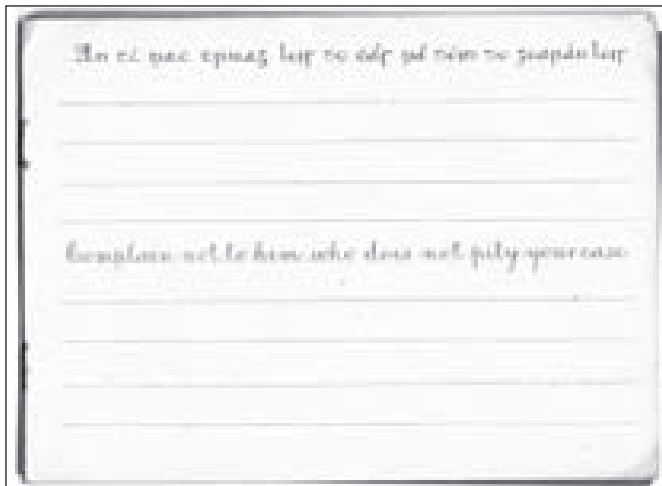 An té nac truaġ leis do cás ná déin do gearán leis
Complain not to him who does not pity your case